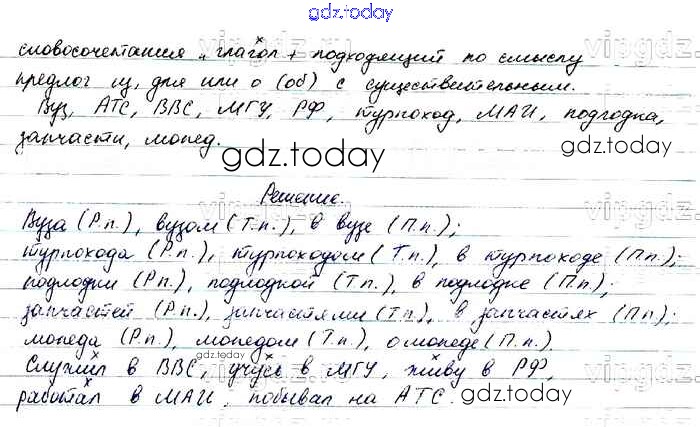 gdz.today
словосочетания „глагол + подходящий по смыслу
предлог из, для или о (об) с существительным.
Вуз, АТС, ВВС, МГУ, РФ, турпоход, МАИ, подлодка,
запчасти, мопед.
gdz.today
Решение.
Вуза (Р.п.), вузом (Т.п.), в вузе (П.п.);
турпохода (Р.п.), турпоходом (Т.п.), в турпоходе (П.п.);
подлодки (Р.п.), подлодкой (Т.п.), в подлодке (П.п.);
запчастей (Р.п.), запчастями (Т.п.), в запчастях (П.п.);
мопеда (Р.п.), мопедом (Т.п.), о мопеде (П.п.).
Служил в ВВС, учусь в МГУ, живу в РФ,
работал в МАИ, побывал на АТС.
gdz.today
gdz.today